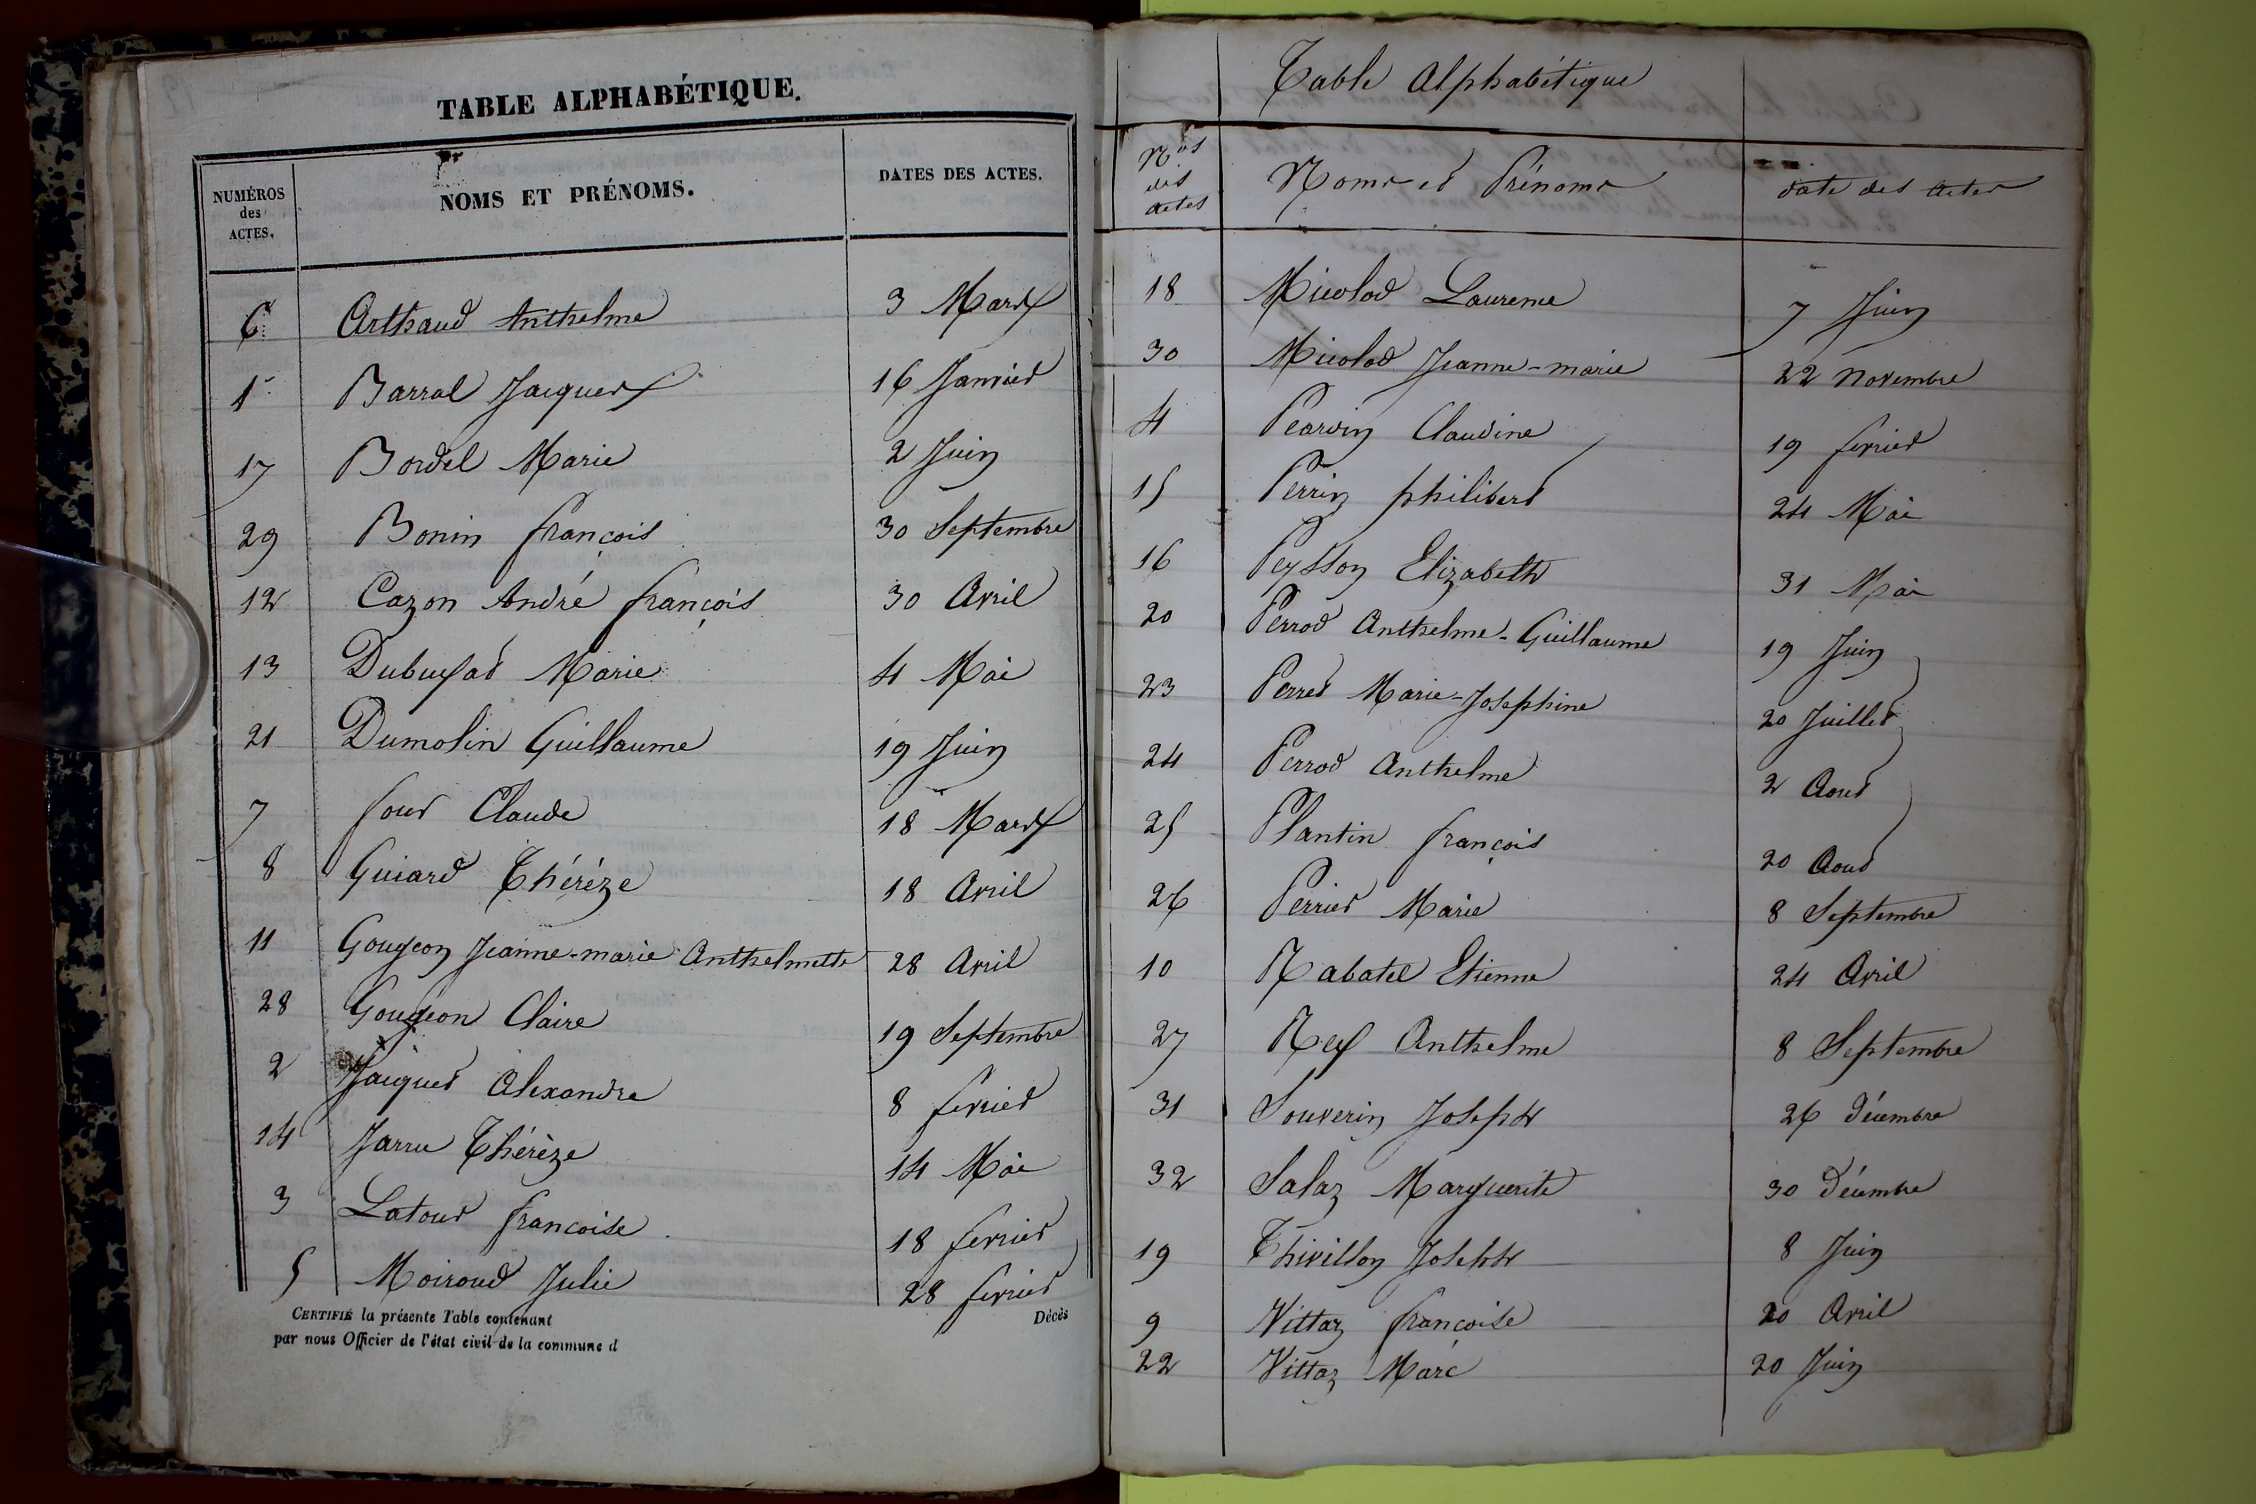 TABLE ALPHABÉTIQUE.
NUMÉROS des ACTES. NOMS ET PRÉNOMS. DATES DES ACTES.
6 Arthaud Anthelme 3 Mars
1 Barral Jacques 16 Janvier
17 Bordel Marie 2 Juin
29 Bonin françois 30 Septembre
12 Cazon André françois 30 Avril
13 Marie 4 Mai
21 Dumolin Guillaume 19 Juin
7 four Claude 18 Mars
8 Guiard Thérèze 18 Avril
11 Goujeon Jeanne-marie Anthelmette 28 Avril
28 Goujeon Claire 19 Septembre
2 Jacques Alexandre 8 fevrier
14 Thérèze 14 Mai
3 Latour francoise 18 fevrier
5 Moiroud Julie 28 fevrier
CERTIFIÉ la présente Table contenant Décès
par nous Officier de l'état civil de la commune d
Table Alphabétique
Nos des actes Noms et Prénoms date des Actes
18 Micolod Laurence 7 Juin
30 Micolod Jeanne-marie 22 Novembre
4 Claudine 19 fevrier
15 Perrin philibert 24 Mai
16 Peysson Elizabeth 31 Mai
20 Perrod Anthelme-Guillaume 19 Juin
23 Perret Marie-Josephine 20 Juillet
24 Perrod Anthelme 2 Aout
25 Plantin françois 20 Aout
26 Perrier Marie 8 Septembre
10 Rabatel Etienne 24 Avril
27 Rey Anthelme 8 Septembre
31 Souverin Joseph 26 décembre
32 Salaz Marguerite 30 décembre
19 Thivillon Joseph 8 Juin
9 Vittaz francoise 20 Avril
22 Vittaz Marc 20 Juin